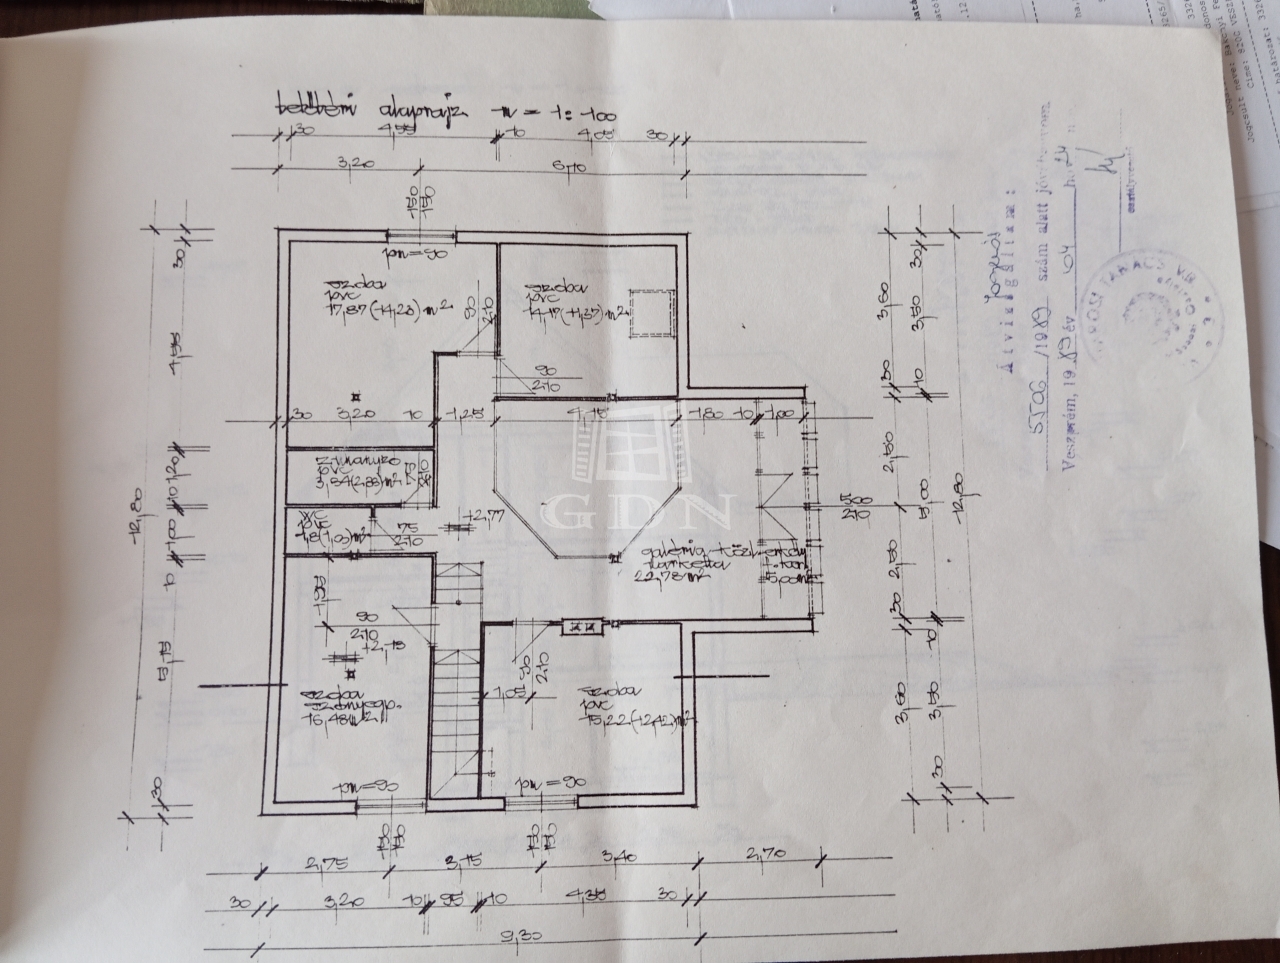 tetőtéri alaprajz m = 1:100
30 4,55 10 4,05 30
3,20 6,10
150
150
pm=90
szoba
pvc
17,87(14,28)m²
90
2,10
szoba
pvc
14,17(11,37)m²
90
2,10
30 3,20 10 1,25 4,15 1,80 10 1,00
pvc
3,84(2,88)m²
WC
pvc
1,8(1,03)m²
75
2,10
+2,77
GDN
galéria-közl.
22,78m²
90
2,10
+2,75
szoba
szőnyegp.
16,48m²
90
2,10
1,05
szoba
pvc
15,22(12,42)m²
pm=90
pm=90
150
150
150
150
2,75 3,15 3,40 2,70
30 3,20 10 95 10 4,35 30
9,30
12,80
30
4,55
10
1,20
10
1,00
10
5,15
30
3,60
30
2,50
2,50
30
3,60
30
3,50
10
5,00
10
3,50
30
12,80
Átvizsgáltam:
5506 /1989 szám alatt
Veszprém, 1989 év 04 hó 24 n